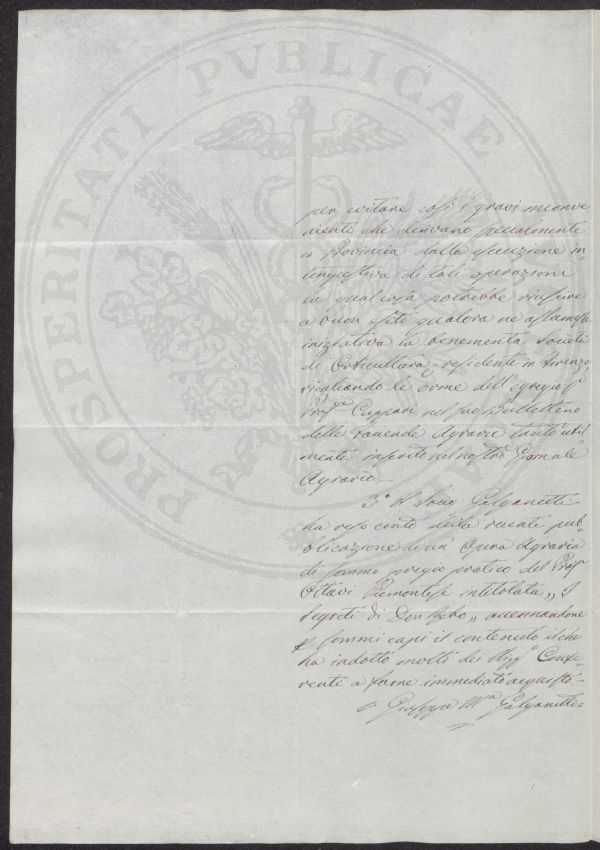 PROSPERITATI PVBLICAE
per evitare così i gravi inconve
nienti che derivano specialmente
in Provincia dalla esecuzione in
tempestiva di tali operazioni
la qual cosa potrebbe riuscire
a buon esito qualora ne assumesse
iniziativa la benemerita Società
di Orticultura residente in Firenze
le orme dell'egregio S.r
Prof.re Cuppari nel suo Bullettino
delle Faccende Agrarie tanto util
mente inserito nel nostro Giornale
Agrario.
3° Il Socio Galganetti
ha reso conto della recente pub
blicazione di un' Opera Agraria
di sommo pregio pratico del Prof.re
Ottavi Piemontese intitolata „I
Segreti di Don Rebo„ accennandone
p sommi capi il contenuto il che
ha indotto molti dei Confe-
renti a farne immediato acquisto.=
= Giuseppe M.a Galganetti=